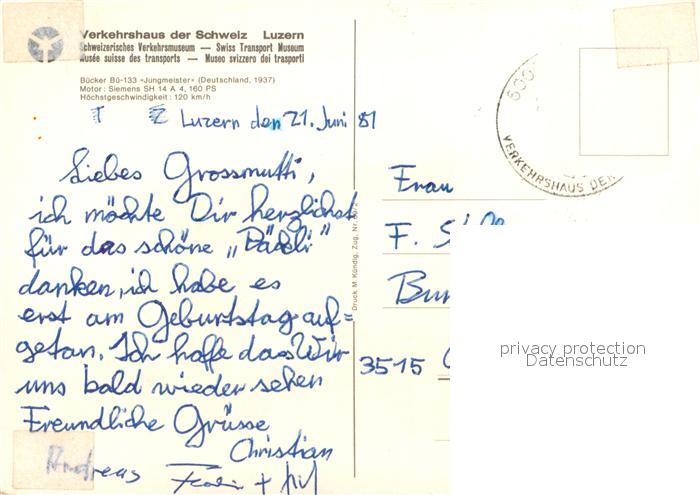 Verkehrshaus der Schweiz Luzern
Schweizerisches Verkehrsmuseum — Swiss Transport Museum
Musée suisse des transports — Museo svizzero dei trasporti
Bücker Bü-133 «Jungmeister» (Deutschland, 1937)
Motor: Siemens SH 14 A 4, 160 PS
Höchstgeschwindigkeit: 120 km/h
Luzern den 21. Juni 81
Liebes Grossmutti,
ich möchte Dir herzlichst
für das schöne „Päckli"
danken, ich habe es
erst am Geburtstag auf=
getan. Ich hoffe das Wir
uns bald wieder sehen
Freundliche Grüsse
Christian
Andreas
Druck M. Kündig, Zug, Nr.
VERKEHRSHAUS DER
Frau
F.
3515
privacy protection
Datenschutz